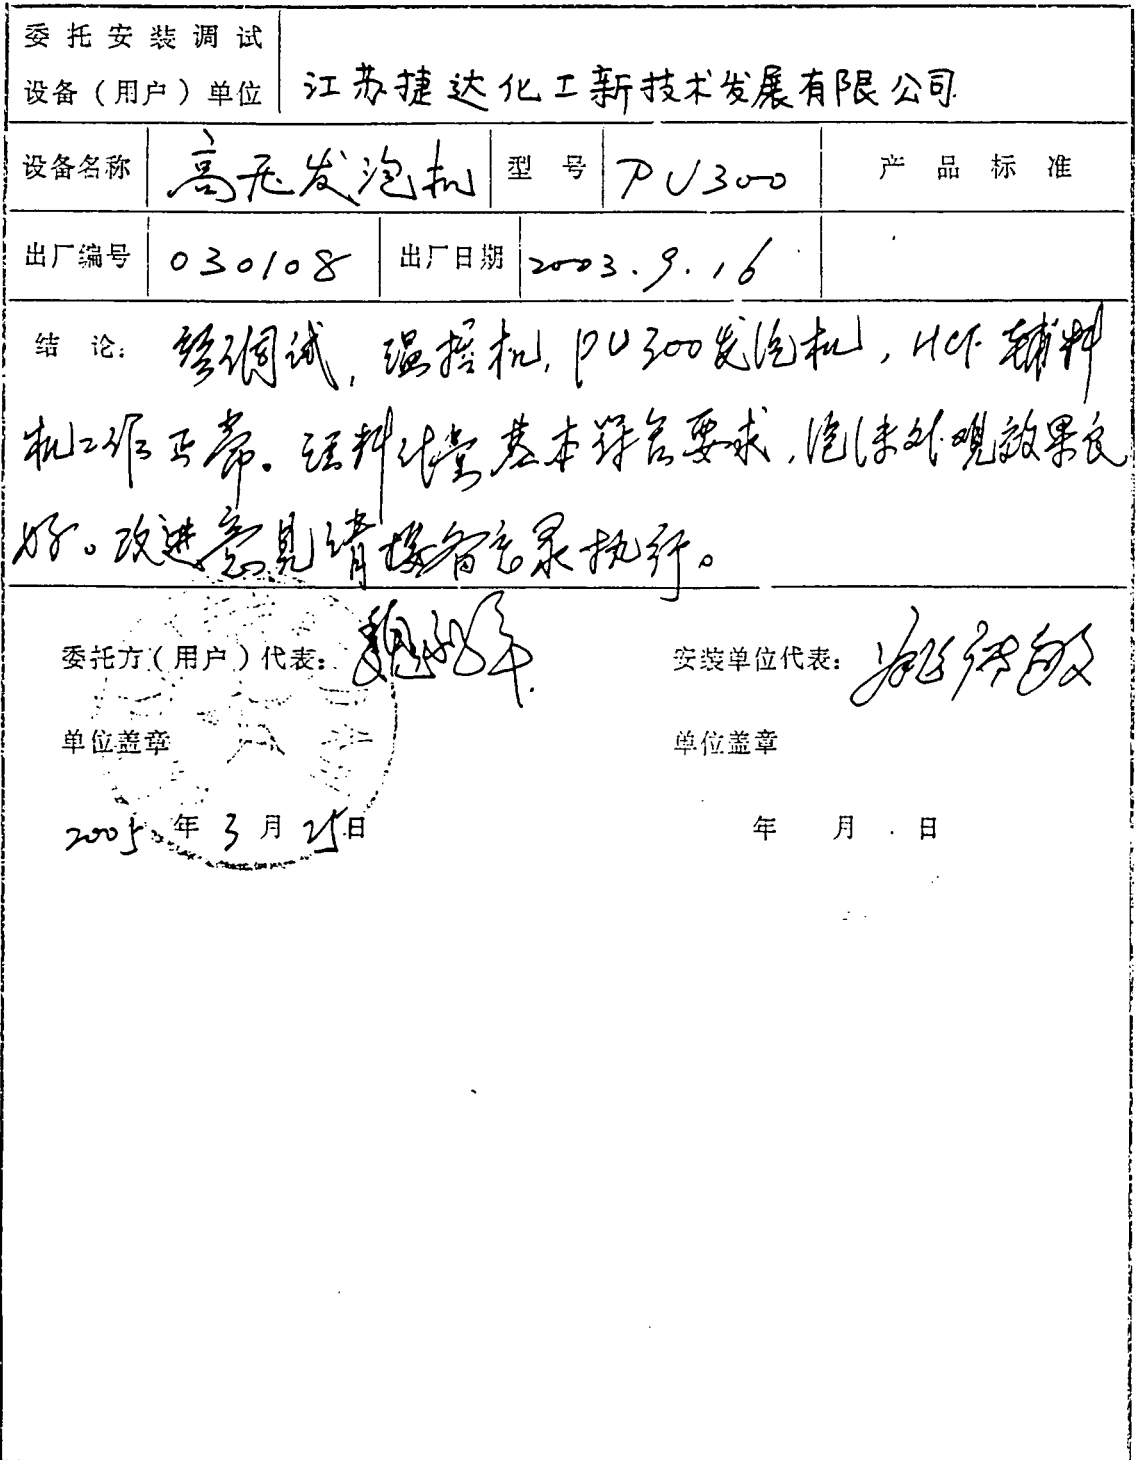 委托安装调试
设备（用户）单位 江苏捷达化工新技术发展有限公司
设备名称 高压发泡机 型号 PU300 产品标准
出厂编号 030108 出厂日期 2003.9.16
结论：经调试，温控机，PU300发泡机，HCF辅料
机工作正常。注料计量基本符合要求，泡沫外观效果良
好。改进意见请按备忘录执行。
委托方（用户）代表： 安装单位代表：
单位盖章 单位盖章
2005年3月25日 年 月 日